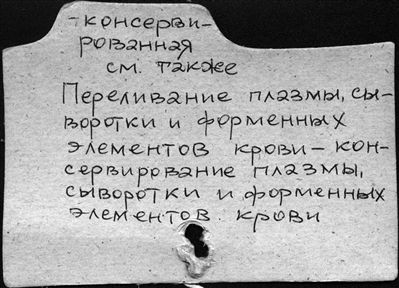 -консерви-
рованная
см. также
Переливание плазмы, сы-
воротки и форменных
элементов крови – кон-
сервирование плазмы,
сыворотки и форменных
элементов крови